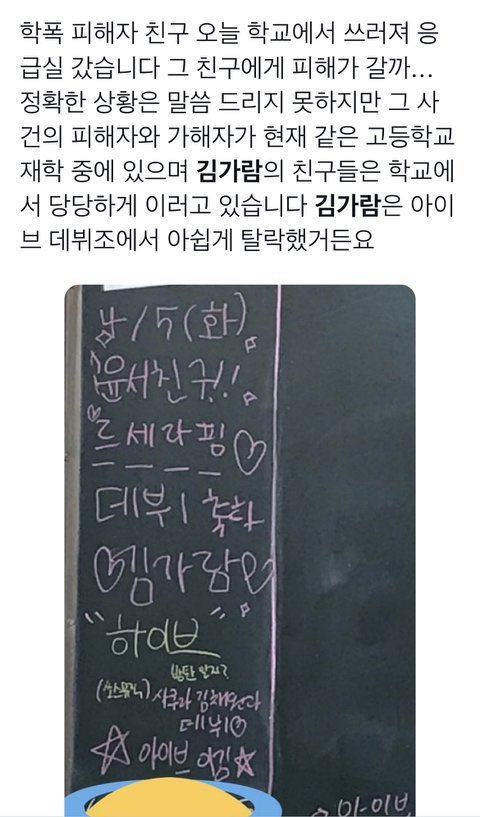 학폭 피해자 친구 오늘 학교에서 쓰러져 응
급실 갔습니다 그 친구에게 피해가 갈까...
정확한 상황은 말씀 드리지 못하지만 그 사
건의 피해자와 가해자가 현재 같은 고등학교
재학 중에 있으며 김가람의 친구들은 학교에
서 당당하게 이러고 있습니다 김가람은 아이
브 데뷔조에서 아쉽게 탈락했거든요
4/5(화)
윤서친구!!
르세라핌♡
데뷔 축하
김가람
"하이브"
방탄 알지?
(쏘스뮤직) 사쿠라 김채원이다
데뷔♡
☆아이브 이김★
아이브